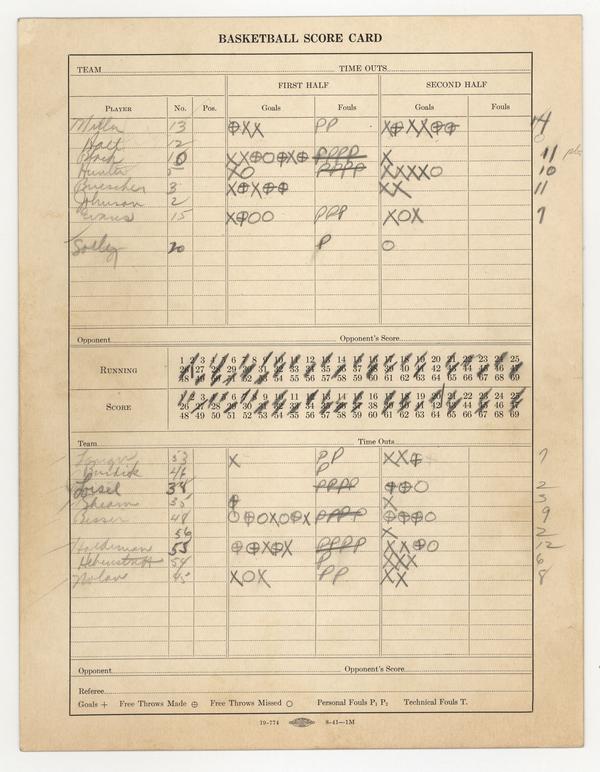 BASKETBALL SCORE CARD
TEAM TIME OUTS
FIRST HALF SECOND HALF
PLAYER No. Pos. Goals Fouls Goals Fouls
Miller 13 ⊕XX PP 14
Holt 12
10 PPPP X 11
Hunter 5 XO PPPP XXXXO 10
Buescher 3 XX 11
Johnson 2
Evans 15 X⊕OO PPP XOX 7
20 P O
Opponent Opponent's Score
RUNNING
1 2 3 4 5 6 7 8 9 10 11 12 13 14 15 16 17 18 19 20 21 22 23 24 25
26 27 28 29 30 31 32 33 34 35 36 37 38 39 40 41 42 43 44 45 46 47
48 49 50 51 52 53 54 55 56 57 58 59 60 61 62 63 64 65 66 67 68 69
SCORE
1 2 3 4 5 6 7 8 9 10 11 12 13 14 15 16 17 18 19 20 21 22 23 24 25
26 27 28 29 30 31 32 33 34 35 36 37 38 39 40 41 42 43 44 45 46 47
48 49 50 51 52 53 54 55 56 57 58 59 60 61 62 63 64 65 66 67 68 69
Team Time Outs
53 X PP 7
Burdick 46 P
34 PPPP ⊕⊕O 2
35 ⊕ X 3
48 ⊕⊕⊕O 9
56 X 2
Holdeman 55 PPPP XX⊕O 12
54 P XXX 6
Nolan 45 XOX PP XX 8
Opponent Opponent's Score
Referee
Goals + Free Throws Made ⊕ Free Throws Missed ○ Personal Fouls P₁ P₂ Technical Fouls T.
19-774 8-41—1M